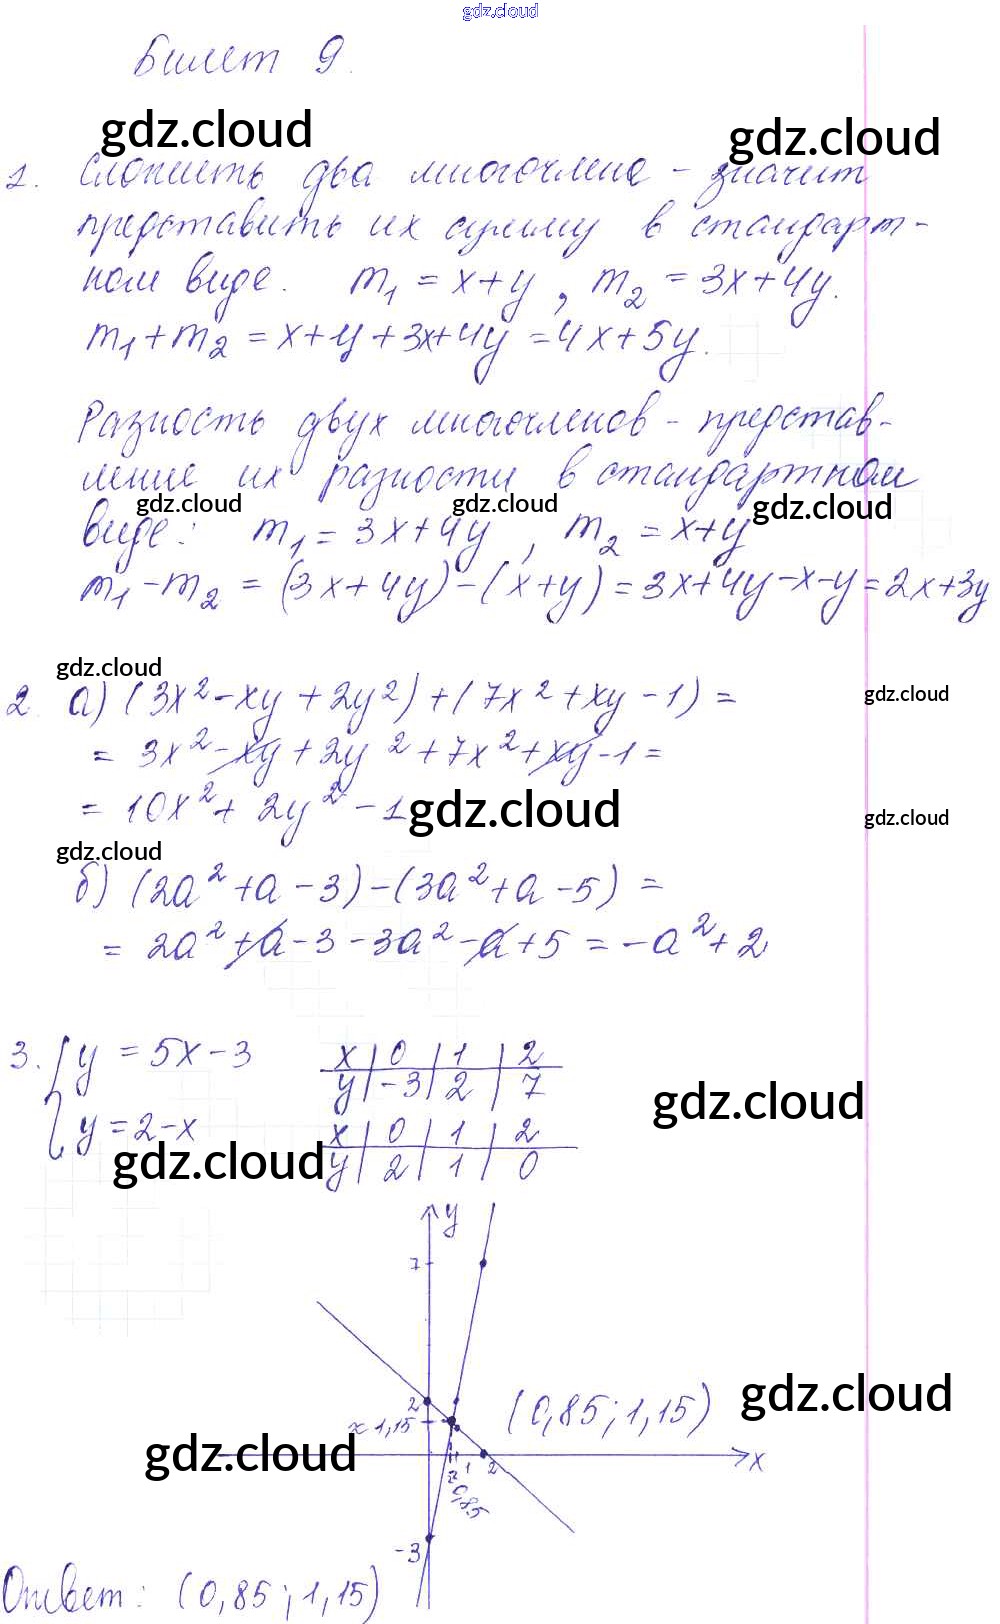 gdz.cloud
Билет 9.
gdz.cloud
gdz.cloud
1. Сложить два многочлена - значит
представить их сумму в стандарт-
ном виде. m₁ = x+y, m₂ = 3x+4y.
m₁+m₂ = x+y+3x+4y = 4x+5y.
Разность двух многочленов - представ-
ление их разности в стандартном
gdz.cloud gdz.cloud gdz.cloud
виде: m₁ = 3x+4y, m₂ = x+y
m₁-m₂ = (3x+4y)-(x+y) = 3x+4y-x-y = 2x+3y
gdz.cloud
gdz.cloud
2. а) (3x²-xy+2y²)+(7x²+xy-1) =
= 3x²-xy+2y²+7x²+xy-1 =
= 10x²+2y²-1
gdz.cloud
gdz.cloud
gdz.cloud
б) (2a²+a-3)-(3a²+a-5) =
= 2a²+a-3-3a²-a+5 = -a²+2
3. { y = 5x-3
x | 0 | 1 | 2
y | -3 | 2 | 7
gdz.cloud
y = 2-x
x | 0 | 1 | 2
y | 2 | 1 | 0
gdz.cloud
y
7
2
≈1,15
(0,85; 1,15)
gdz.cloud
gdz.cloud
x
1 2
≈0,85
-3
Ответ: (0,85; 1,15)